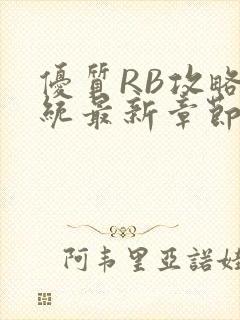 優質RB攻略
統最新章節
阿韦里亞諾娃